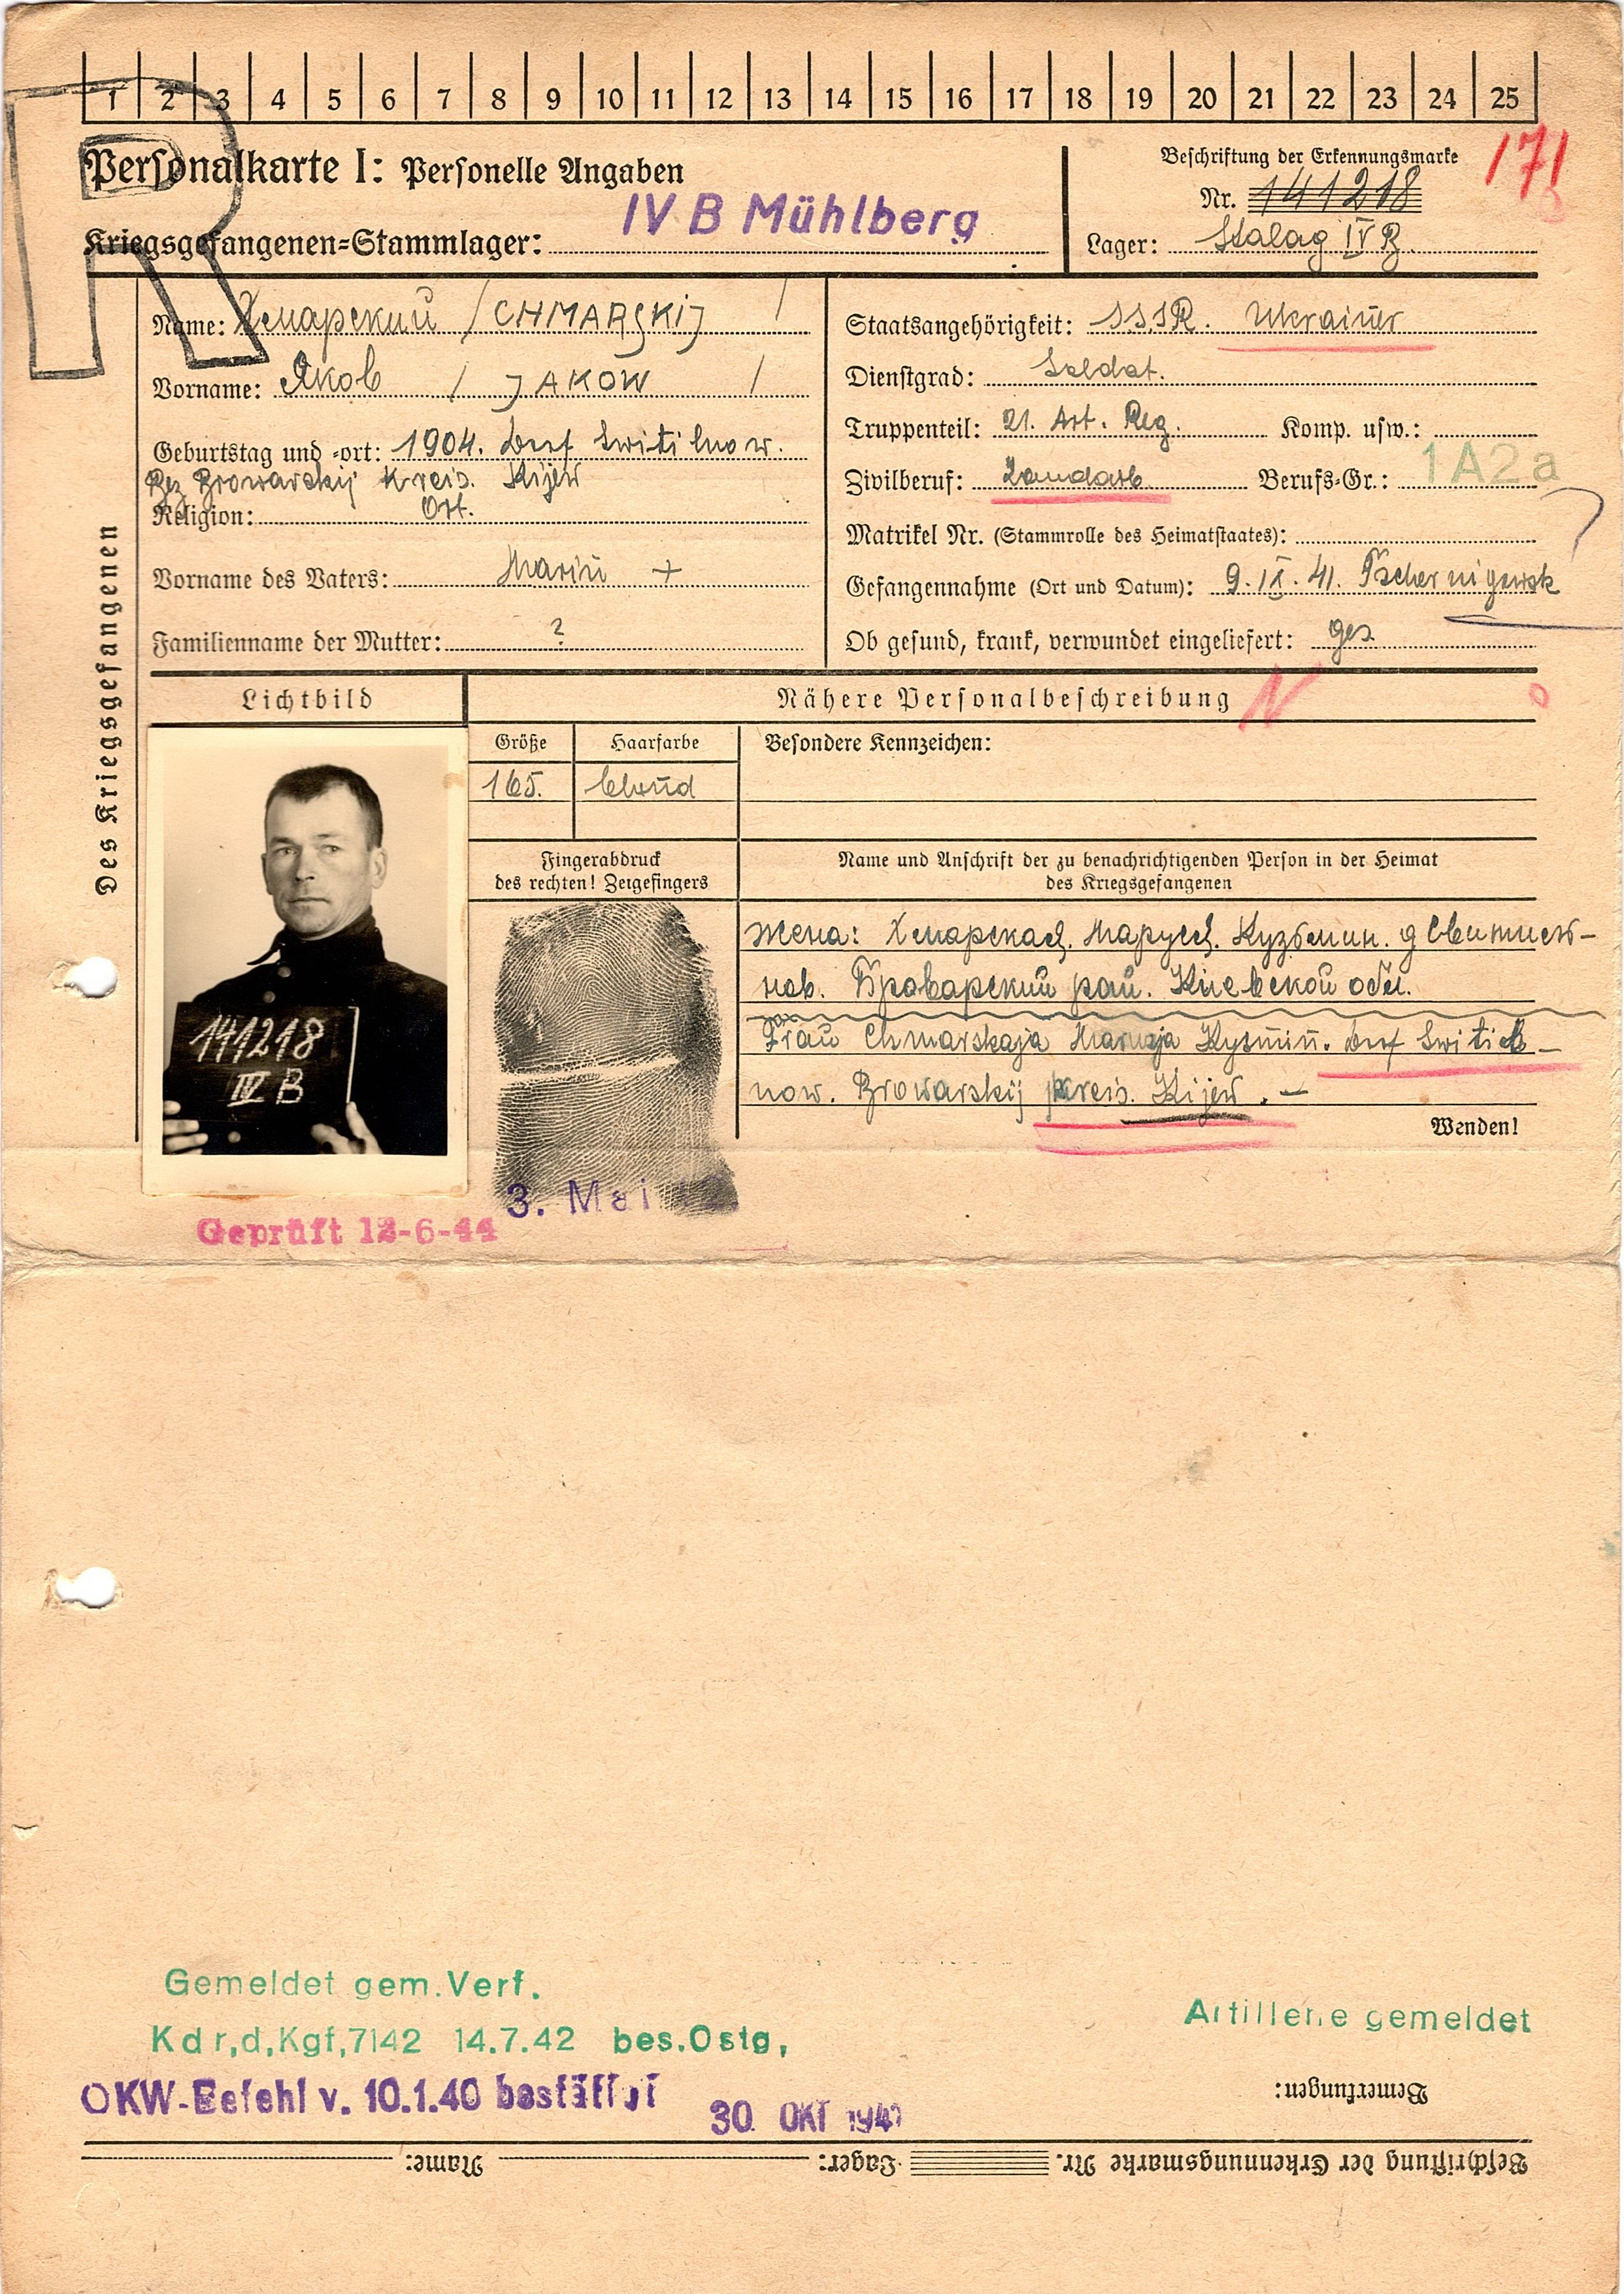 1 2 3 4 5 6 7 8 9 10 11 12 13 14 15 16 17 18 19 20 21 22 23 24 25
R
Personalkarte I: Personelle Angaben
Kriegsgefangenen-Stammlager: IV B Mühlberg
Beschriftung der Erkennungsmarke
Nr. 141218
Lager: Stalag IV B
171
Des Kriegsgefangenen
Name: Хмарский / CHMARSKIJ /
Vorname: Яков / JAKOW /
Geburtstag und -ort: 1904. Dorf Switilnow.
Bez Browarskij Kreis. Kijew
Religion: Ort.
Vorname des Vaters: +
Familienname der Mutter: ?
Staatsangehörigkeit: SSSR. Ukrainer
Dienstgrad: Soldat.
Truppenteil: 21. Art. Reg. Komp. usw.:
Zivilberuf: Landarb. Berufs-Gr.: 1A2a
Matrikel Nr. (Stammrolle des Heimatstaates): ?
Gefangennahme (Ort und Datum): 9. IX. 41. Tschernigowsk
Ob gesund, krank, verwundet eingeliefert: ges.
Lichtbild
Nähere Personalbeschreibung
Größe
Haarfarbe
Besondere Kennzeichen:
165.
blond
141218
IV B
Fingerabdruck
des rechten! Zeigefingers
Name und Anschrift der zu benachrichtigenden Person in der Heimat
des Kriegsgefangenen
жена: Хмарская. Маруся. Кузьмин. д Свитиль-
нов. Броварский рай. Киевской обл.
Frau Chmarskaja Marusja Kysmin. Dorf Switil-
now. Browarskij Kreis. Kijew. –
Wenden!
3. Mai
Geprüft 12-6-44
Gemeldet gem. Verf.
Kdr,d,Kgf,7142 14.7.42 bes.Ostg,
OKW-Befehl v. 10.1.40 bestätigt
30. OKT 194
Artillerie gemeldet
Bemerkungen:
Beschriftung der Erkennungsmarke Nr. Lager: Name: